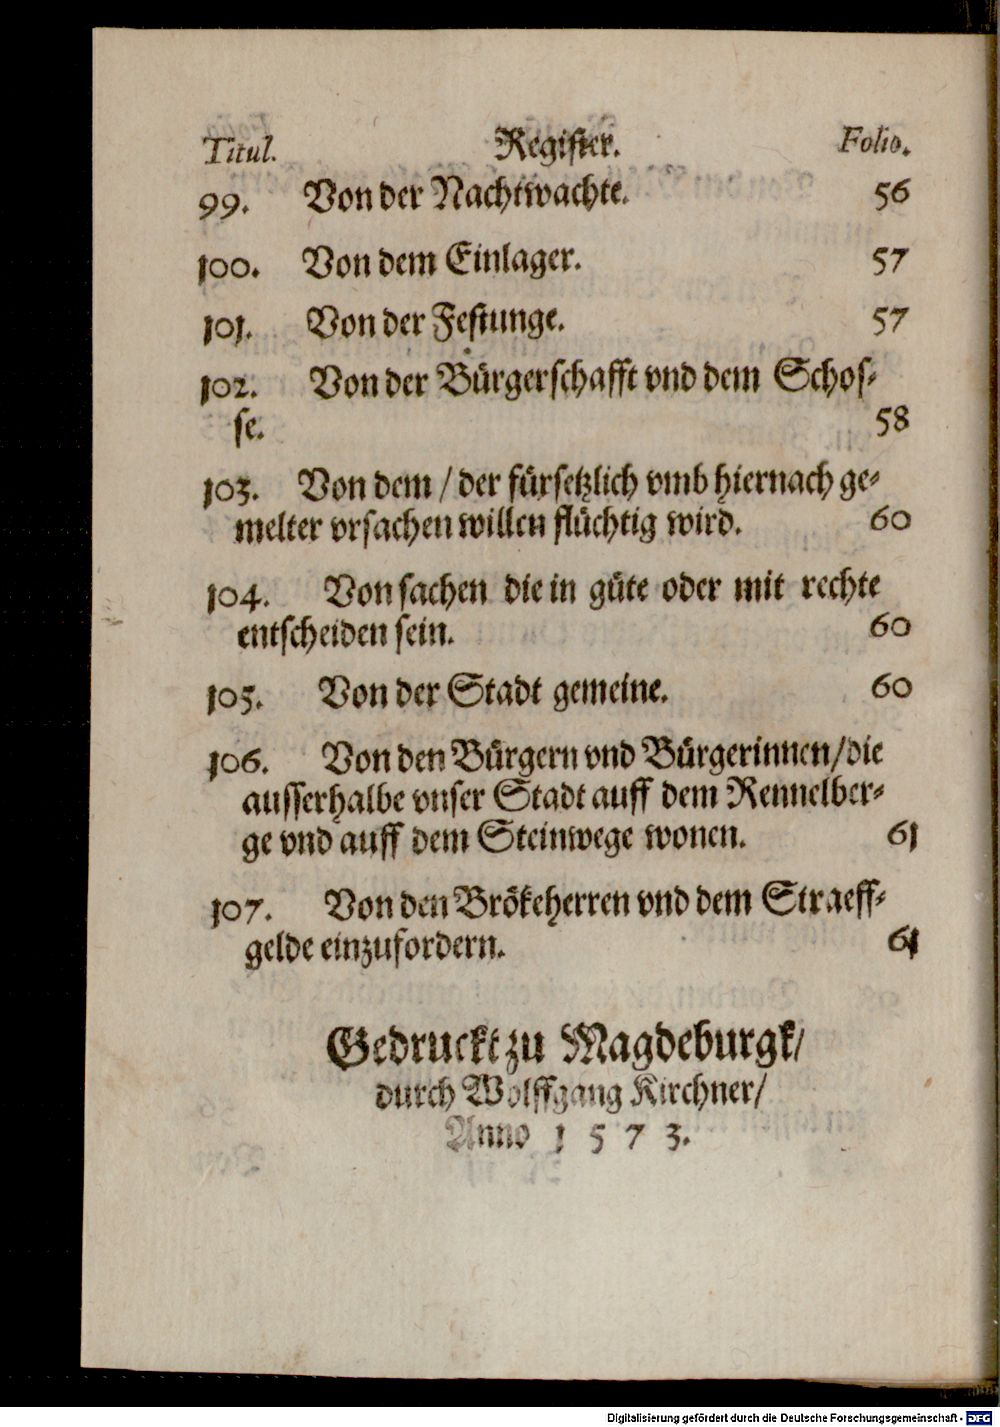 Titul. Register. Folio.
99. Von der Nachtwachte. 56
100. Von dem Einlager. 57
101. Von der Festunge. 57
102. Von der Bürgerschafft vnd dem Schos-
se. 58
103. Von dem / der fürsetzlich vmb hiernach ge-
melter vrsachen willen flüchtig wird. 60
104. Von sachen die in güte oder mit rechte
entscheiden sein. 60
105. Von der Stadt gemeine. 60
106. Von den Bürgern vnd Bürgerinnen/die
ausserhalbe vnser Stadt auff dem Rennelber-
ge vnd auff dem Steinwege wonen. 61
107. Von den Brökeherren vnd dem Straeff-
gelde einzufordern. 61
Gedruckt zu Magdeburgk/
durch Wolffgang Kirchner/
Anno 1573.
Digitalisierung gefördert durch die Deutsche Forschungsgemeinschaft - DFG